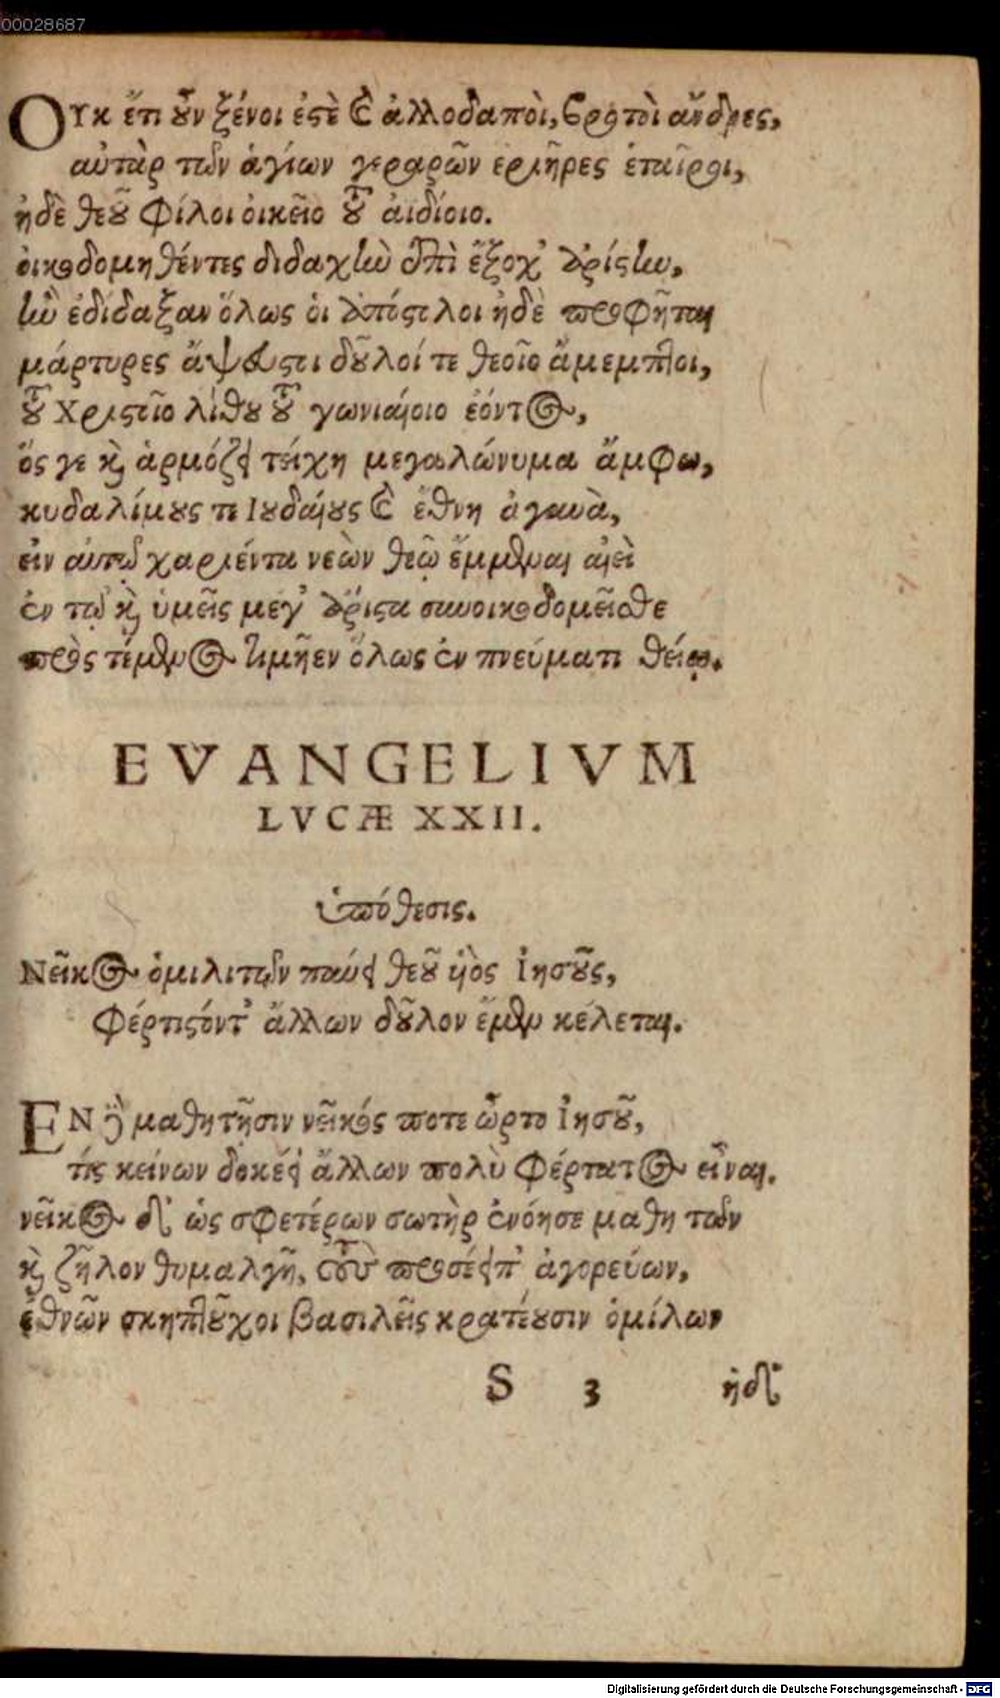 00028687
Οὐκ ἔτι οὖν ξένοι ἐστὲ καὶ ἀλλοδαποὶ, βροτοὶ ἄνδρες,
αὐτὰρ τῶν ἁγίων γεραρῶν ἐριῆρες ἑταῖροι,
ἠδὲ θεοῦ φίλοι οἰκεῖο τοῦ ἀϊδίοιο.
οἰκοδομηθέντες διδαχὴν ἐπὶ ἔξοχ' ἀρίστην,
ἣν ἐδίδαξαν ὅλως οἱ ἀπόστολοι ἠδὲ προφῆται
μάρτυρες ἄψευστι δοῦλοί τε θεοῖο ἄμεμπτοι,
τοῦ Χριστῖο λίθου τοῦ γωνιαίοιο ἐόντος,
ὅς γε καὶ ἁρμόζει τείχη μεγαλώνυμα ἄμφω,
κυδαλίμους τε Ἰουδαίους καὶ ἔθνη ἀγαυὰ,
εἰν αὐτῷ χαρίεντα νεὼν θεῷ ἔμμεναι αἰεὶ
ἐν τῷ καὶ ὑμεῖς μέγ' ἄριστα συνοικοδομεῖσθε
πρὸς τέμενος τιμῆεν ὅλως ἐν πνεύματι θείῳ.
EVANGELIVM
LVCÆ XXII.
ὑπόθεσις.
Νεῖκος ὁμιλιτῶν παύει θεοῦ υἱὸς Ἰησοῦς,
φέρτιστόντ' ἄλλων δοῦλον ἔμεν κέλεται.
ΕΝ δὲ μαθητῇσιν νεῖκός ποτε ὦρτο Ἰησοῦ,
τίς κείνων δοκέει ἄλλων πολὺ φέρτατος εἶναι.
νεῖκος δ' ὡς σφετέρων σωτὴρ ἐνόησε μαθητῶν
καὶ ζῆλον θυμαλγῆ, τοὺς προσέειπ' ἀγορεύων,
ἐθνῶν σκηπτοῦχοι βασιλεῖς κρατέουσιν ὁμίλων
S 3 ἠδ'
Digitalisierung gefördert durch die Deutsche Forschungsgemeinschaft - DFG